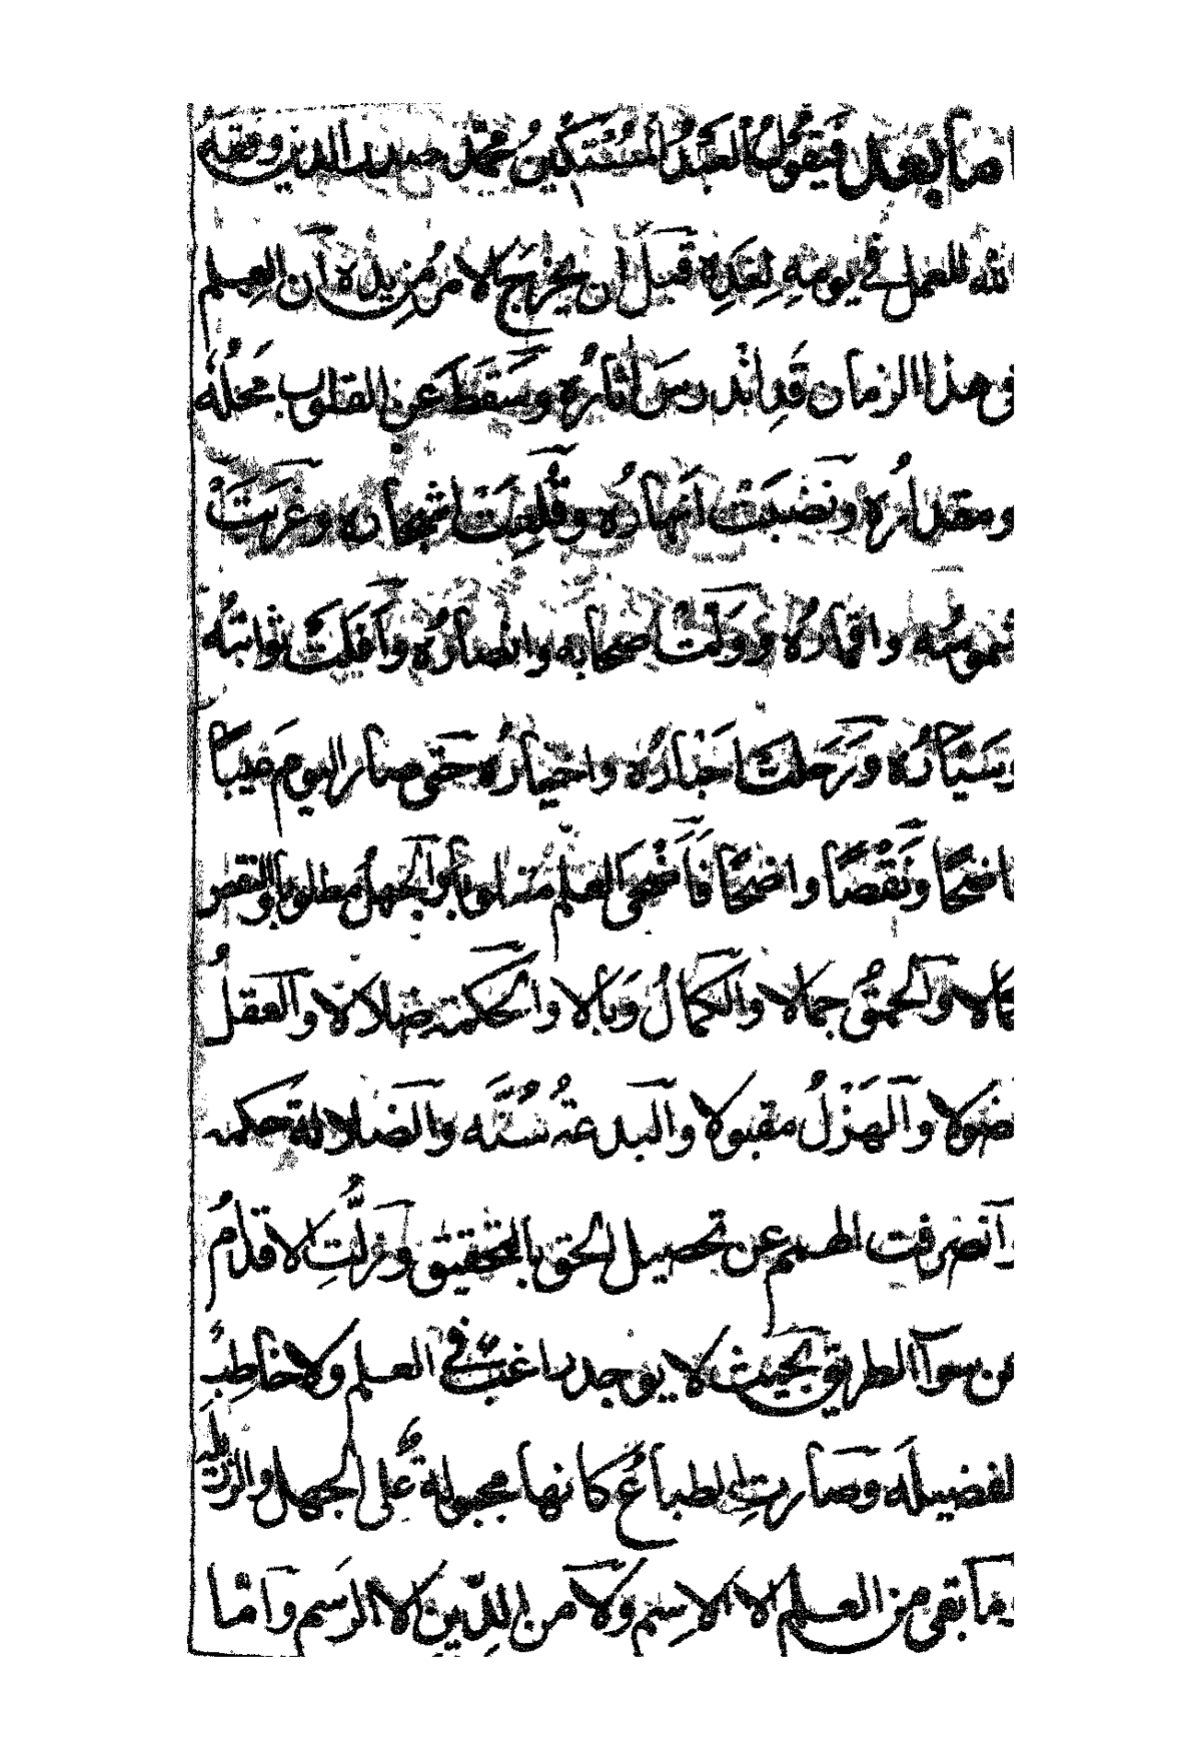 اما بعد فيقول العبد المستكين محمد صدر الدين وفقه
الله للعمل في يومه لغده قبل ان يخرج الامر من يده ان العلم
في هذا الزمان قد اندرس اثاره وسقط عن القلوب محله
ومقداره ونضبت انهاره وقلعت اشجاره وغربت
شموسه واقماره وولت اصحابه وانصاره وأفلت ثوابته
وسياره ورحلت احباره واخياره حتى صار اليوم عيبا
فاضحا ونقصا واضحا فأضحى العلم مثلوبا والجهل مطلوبا والنقص
كمالا والحمق جمالا والكمال وبالا والحكمة ضلالا والعقل
فضولا والهزل مقبولا والبدعة سنه والضلالة حكمه
وانصرفت الهمم عن تحصيل الحق بالتحقيق وزلت الاقدام
عن سواآ الطريق بحيث لا يوجد راغب في العلم ولا خاطب
لفضيله وصارت الطباع كانها مجبولة على الجهل والرذيله
وما بقى من العلم الا الاسم ولا من الدين الا الرسم واما